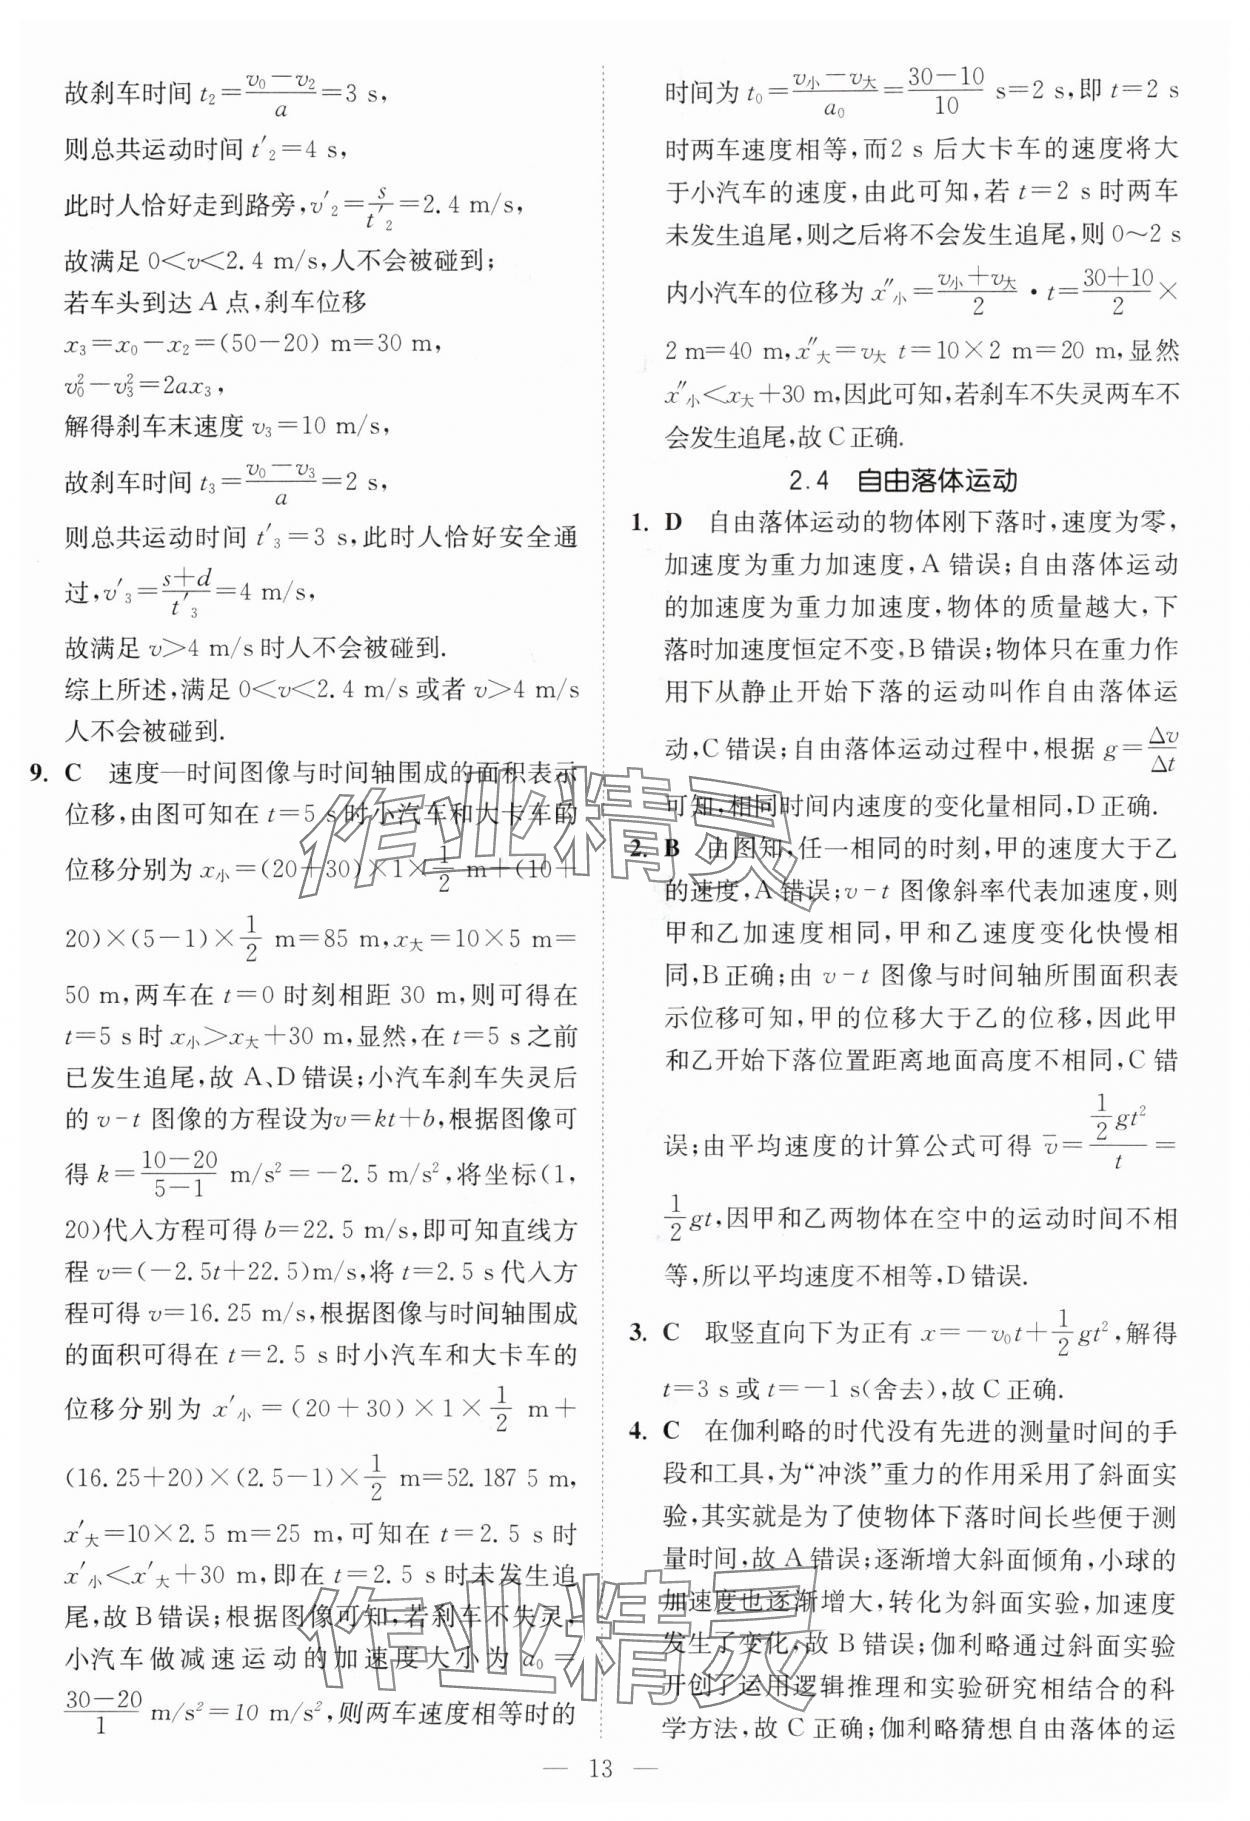 故刹车时间 t₂=(v₀-v₂)/a=3 s,
则总共运动时间 t′₂=4 s,
此时人恰好走到路旁,v′₂=s/t′₂=2.4 m/s,
故满足 0<v<2.4 m/s,人不会被碰到;
若车头到达 A 点,刹车位移
x₃=x₀-x₂=(50-20) m=30 m,
v₀²-v₃²=2ax₃,
解得刹车末速度 v₃=10 m/s,
故刹车时间 t₃=(v₀-v₃)/a=2 s,
则总共运动时间 t′₃=3 s,此时人恰好安全通
过,v′₃=(s+d)/t′₃=4 m/s,
故满足 v>4 m/s时人不会被碰到.
综上所述,满足 0<v<2.4 m/s或者 v>4 m/s
人不会被碰到.
9. C 速度—时间图像与时间轴围成的面积表示
位移,由图可知在 t=5 s时小汽车和大卡车的
位移分别为 x小=(20+30)×1×1/2 m+(10+
20)×(5-1)×1/2 m=85 m,x大=10×5 m=
50 m,两车在 t=0 时刻相距 30 m,则可得在
t=5 s时 x小>x大+30 m,显然,在 t=5 s之前
已发生追尾,故 A、D错误;小汽车刹车失灵后
的 v-t 图像的方程设为v=kt+b,根据图像可
得 k=(10-20)/(5-1) m/s²=-2.5 m/s²,将坐标(1,
20)代入方程可得 b=22.5 m/s,即可知直线方
程 v=(-2.5t+22.5)m/s,将 t=2.5 s代入方
程可得 v=16.25 m/s,根据图像与时间轴围成
的面积可得在 t=2.5 s时小汽车和大卡车的
位移分别为 x′小=(20+30)×1×1/2 m+
(16.25+20)×(2.5-1)×1/2 m=52.187 5 m,
x′大=10×2.5 m=25 m,可知在 t=2.5 s时
x′小<x′大+30 m,即在 t=2.5 s时未发生追
尾,故 B错误;根据图像可知,若刹车不失灵,
小汽车做减速运动的加速度大小为 a₀=
(30-20)/1 m/s²=10 m/s²,则两车速度相等时的
时间为 t₀=(v小-v大)/a₀=(30-10)/10 s=2 s,即 t=2 s
时两车速度相等,而2 s后大卡车的速度将大
于小汽车的速度,由此可知,若 t=2 s时两车
未发生追尾,则之后将不会发生追尾,则 0~2 s
内小汽车的位移为 x″小=(v小+v大)/2·t=(30+10)/2×
2 m=40 m,x″大=v大 t=10×2 m=20 m,显然
x″小<x大+30 m,因此可知,若刹车不失灵两车不
会发生追尾,故 C正确.
2.4 自由落体运动
1. D 自由落体运动的物体刚下落时,速度为零,
加速度为重力加速度,A错误;自由落体运动
的加速度为重力加速度,物体的质量越大,下
落时加速度恒定不变,B错误;物体只在重力作
用下从静止开始下落的运动叫作自由落体运
动,C错误;自由落体运动过程中,根据 g=Δv/Δt
可知,相同时间内速度的变化量相同,D正确.
2. B 由图知,任一相同的时刻,甲的速度大于乙
的速度,A错误;v-t 图像斜率代表加速度,则
甲和乙加速度相同,甲和乙速度变化快慢相
同,B正确;由 v-t 图像与时间轴所围面积表
示位移可知,甲的位移大于乙的位移,因此甲
和乙开始下落位置距离地面高度不相同,C错
误;由平均速度的计算公式可得 v̄=(1/2gt²)/t=
1/2gt,因甲和乙两物体在空中的运动时间不相
等,所以平均速度不相等,D错误.
3. C 取竖直向下为正有 x=-v₀t+1/2gt²,解得
t=3 s或 t=-1 s(舍去),故 C正确.
4. C 在伽利略的时代没有先进的测量时间的手
段和工具,为“冲淡”重力的作用采用了斜面实
验,其实就是为了使物体下落时间长些便于测
量时间,故 A错误;逐渐增大斜面倾角,小球的
加速度也逐渐增大,转化为斜面实验,加速度
发生了变化,故 B错误;伽利略通过斜面实验
开创了运用逻辑推理和实验研究相结合的科
学方法,故 C正确;伽利略猜想自由落体的运
— 13 —
作业精灵
作业精灵